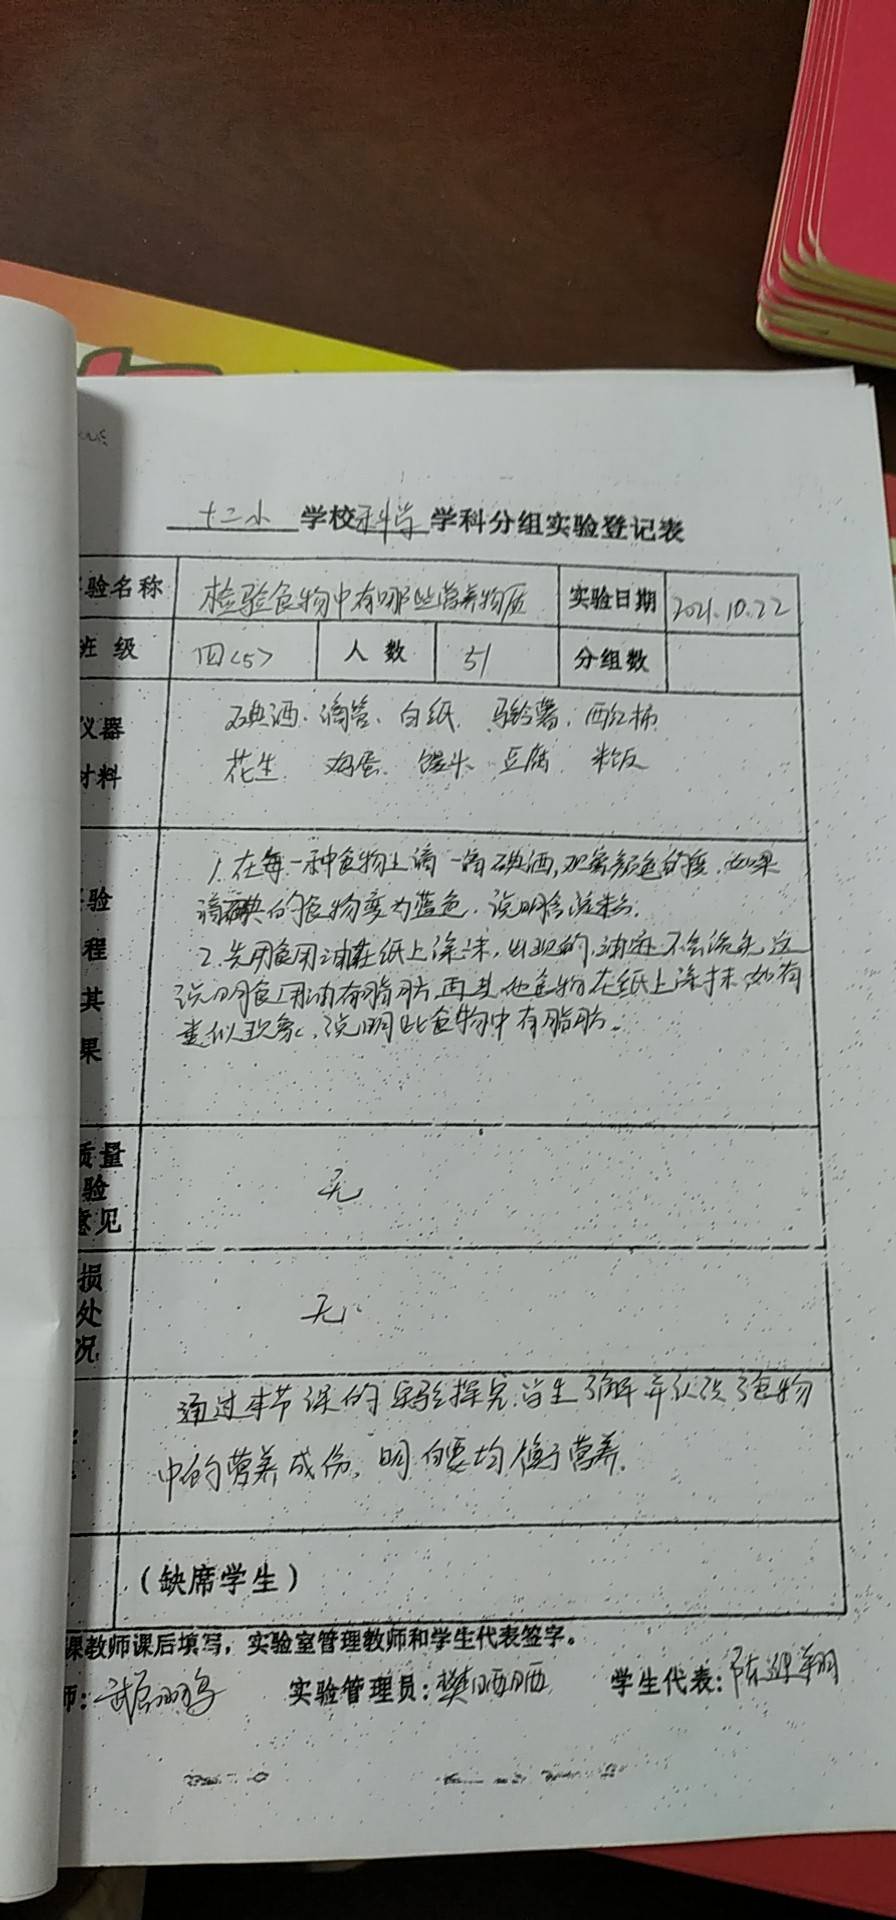 十二小 学校科学学科分组实验登记表
验名称 检验食物中有哪些营养物质 实验日期 2021.10.22
班 级 四<5> 人 数 51 分组数
仪器 碘酒、滴管、白纸、马铃薯、西红柿
材料 花生、鸡蛋、馒头、豆腐、米饭
1.在每一种食物上滴一滴碘酒,观察颜色的变,如果
验 滴碘的食物变为蓝色,说明含淀粉。
程 2.先用食用油在纸上涂抹,出现的油迹不会消失,这
其 说明食用油有脂肪,再其他食物在纸上涂抹,如有
果 类似现象,说明此食物中有脂肪。
质量
验 无
意见
损
处 无
况
通过本节课的实验探究,学生了解并认识了食物
中的营养成份,明白要均衡营养。
(缺席学生)
课教师课后填写,实验室管理教师和学生代表签字。
师: 实验管理员:樊晒晒 学生代表:陈迎翔